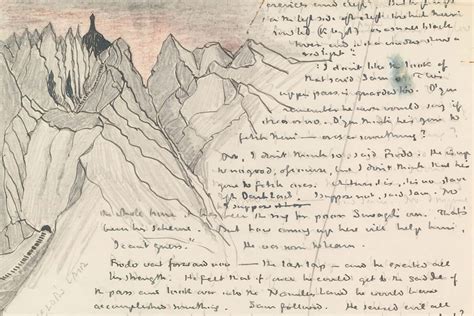 crevices and clefts. But high up
on the left side
small black
tower and in a window shone a
red light.
'I don't like the look of
that' said Sam.
upper pass is guarded too. D'you
remember he never would say if
it was or no. D'you think he's gone to
fetch them — orcs or something?'
'No, I don't think so,' said Frodo. 'He is up
to no good, of course, but I don't think that he's
gone to fetch orcs. it's no slave
Dark Lord.' 'I suppose not,' said Sam. 'No
I suppose
the whole time it has been the ring for poor Smeagol's own. That's
been his scheme. But how coming up here will help him,
I can't guess.' He was soon to learn.
Frodo went forward now — the last lap — and he exerted all
his strength. He felt that if once he could get to the saddle of
the pass and look over into the Nameless Land he would have
accomplished something. Sam followed. He sensed evil all